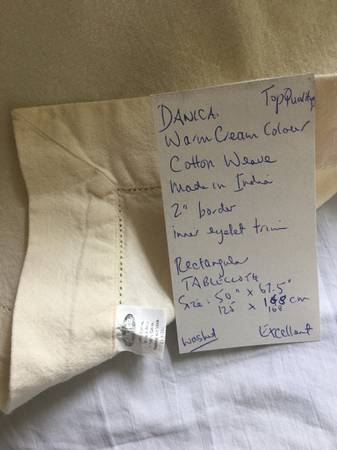 DANICA. Top Quality
Warm Cream Colour
Cotton Weave
Made in India
2" border
inner eyelet trim
Rectangular
TABLECLOTH
Size: 50" x 67.5"
125 x 168 cm
168
Washed Excellent